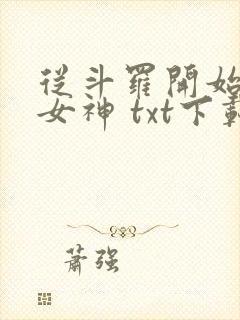 從斗羅開始
女神 txt下載
蕭強